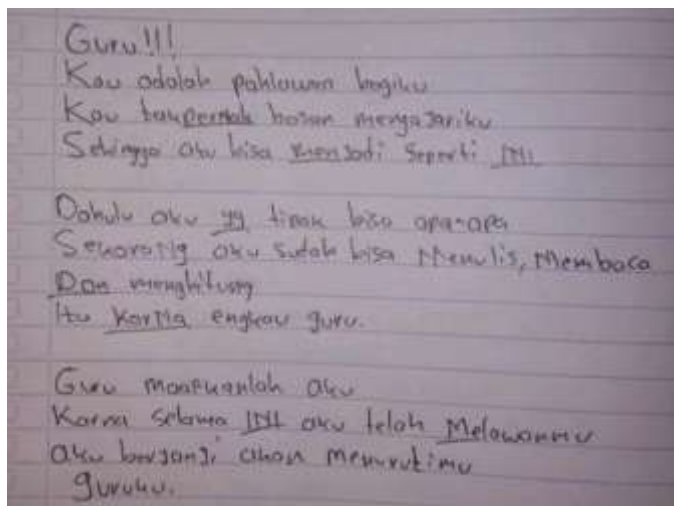 Guru!!!
Kau adalah pahlawan bagiku
Kau taupernah bosan mengajariku
Sehingga aku bisa menjadi seperti INI
Dahulu aku yg tidak bisa apa-apa
Sekarang aku sudah bisa Menulis, Membaca
Dan menghitung
Itu karna engkau guru.
Guru aku
Karna selama INI aku telah Melawanmu
aku berjanji akan menurutimu
guruku.